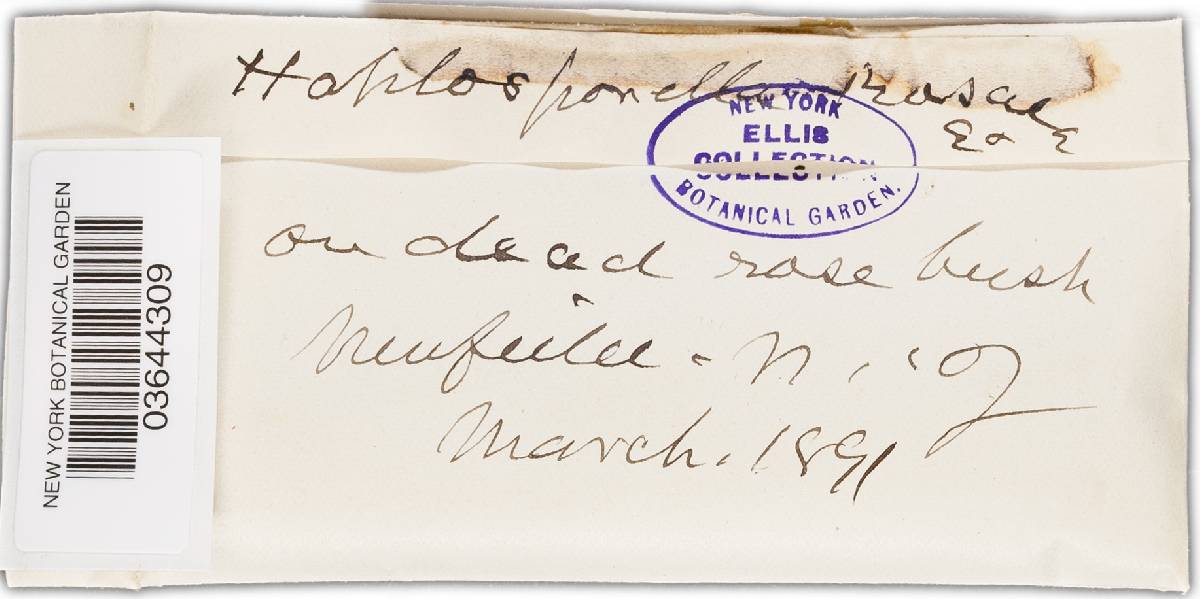 Haplosporella Rosae
E & E
NEW YORK
ELLIS
COLLECTION
BOTANICAL GARDEN.
on dead rose bush
Newfield - N. J
March. 1891
NEW YORK BOTANICAL GARDEN
03644309